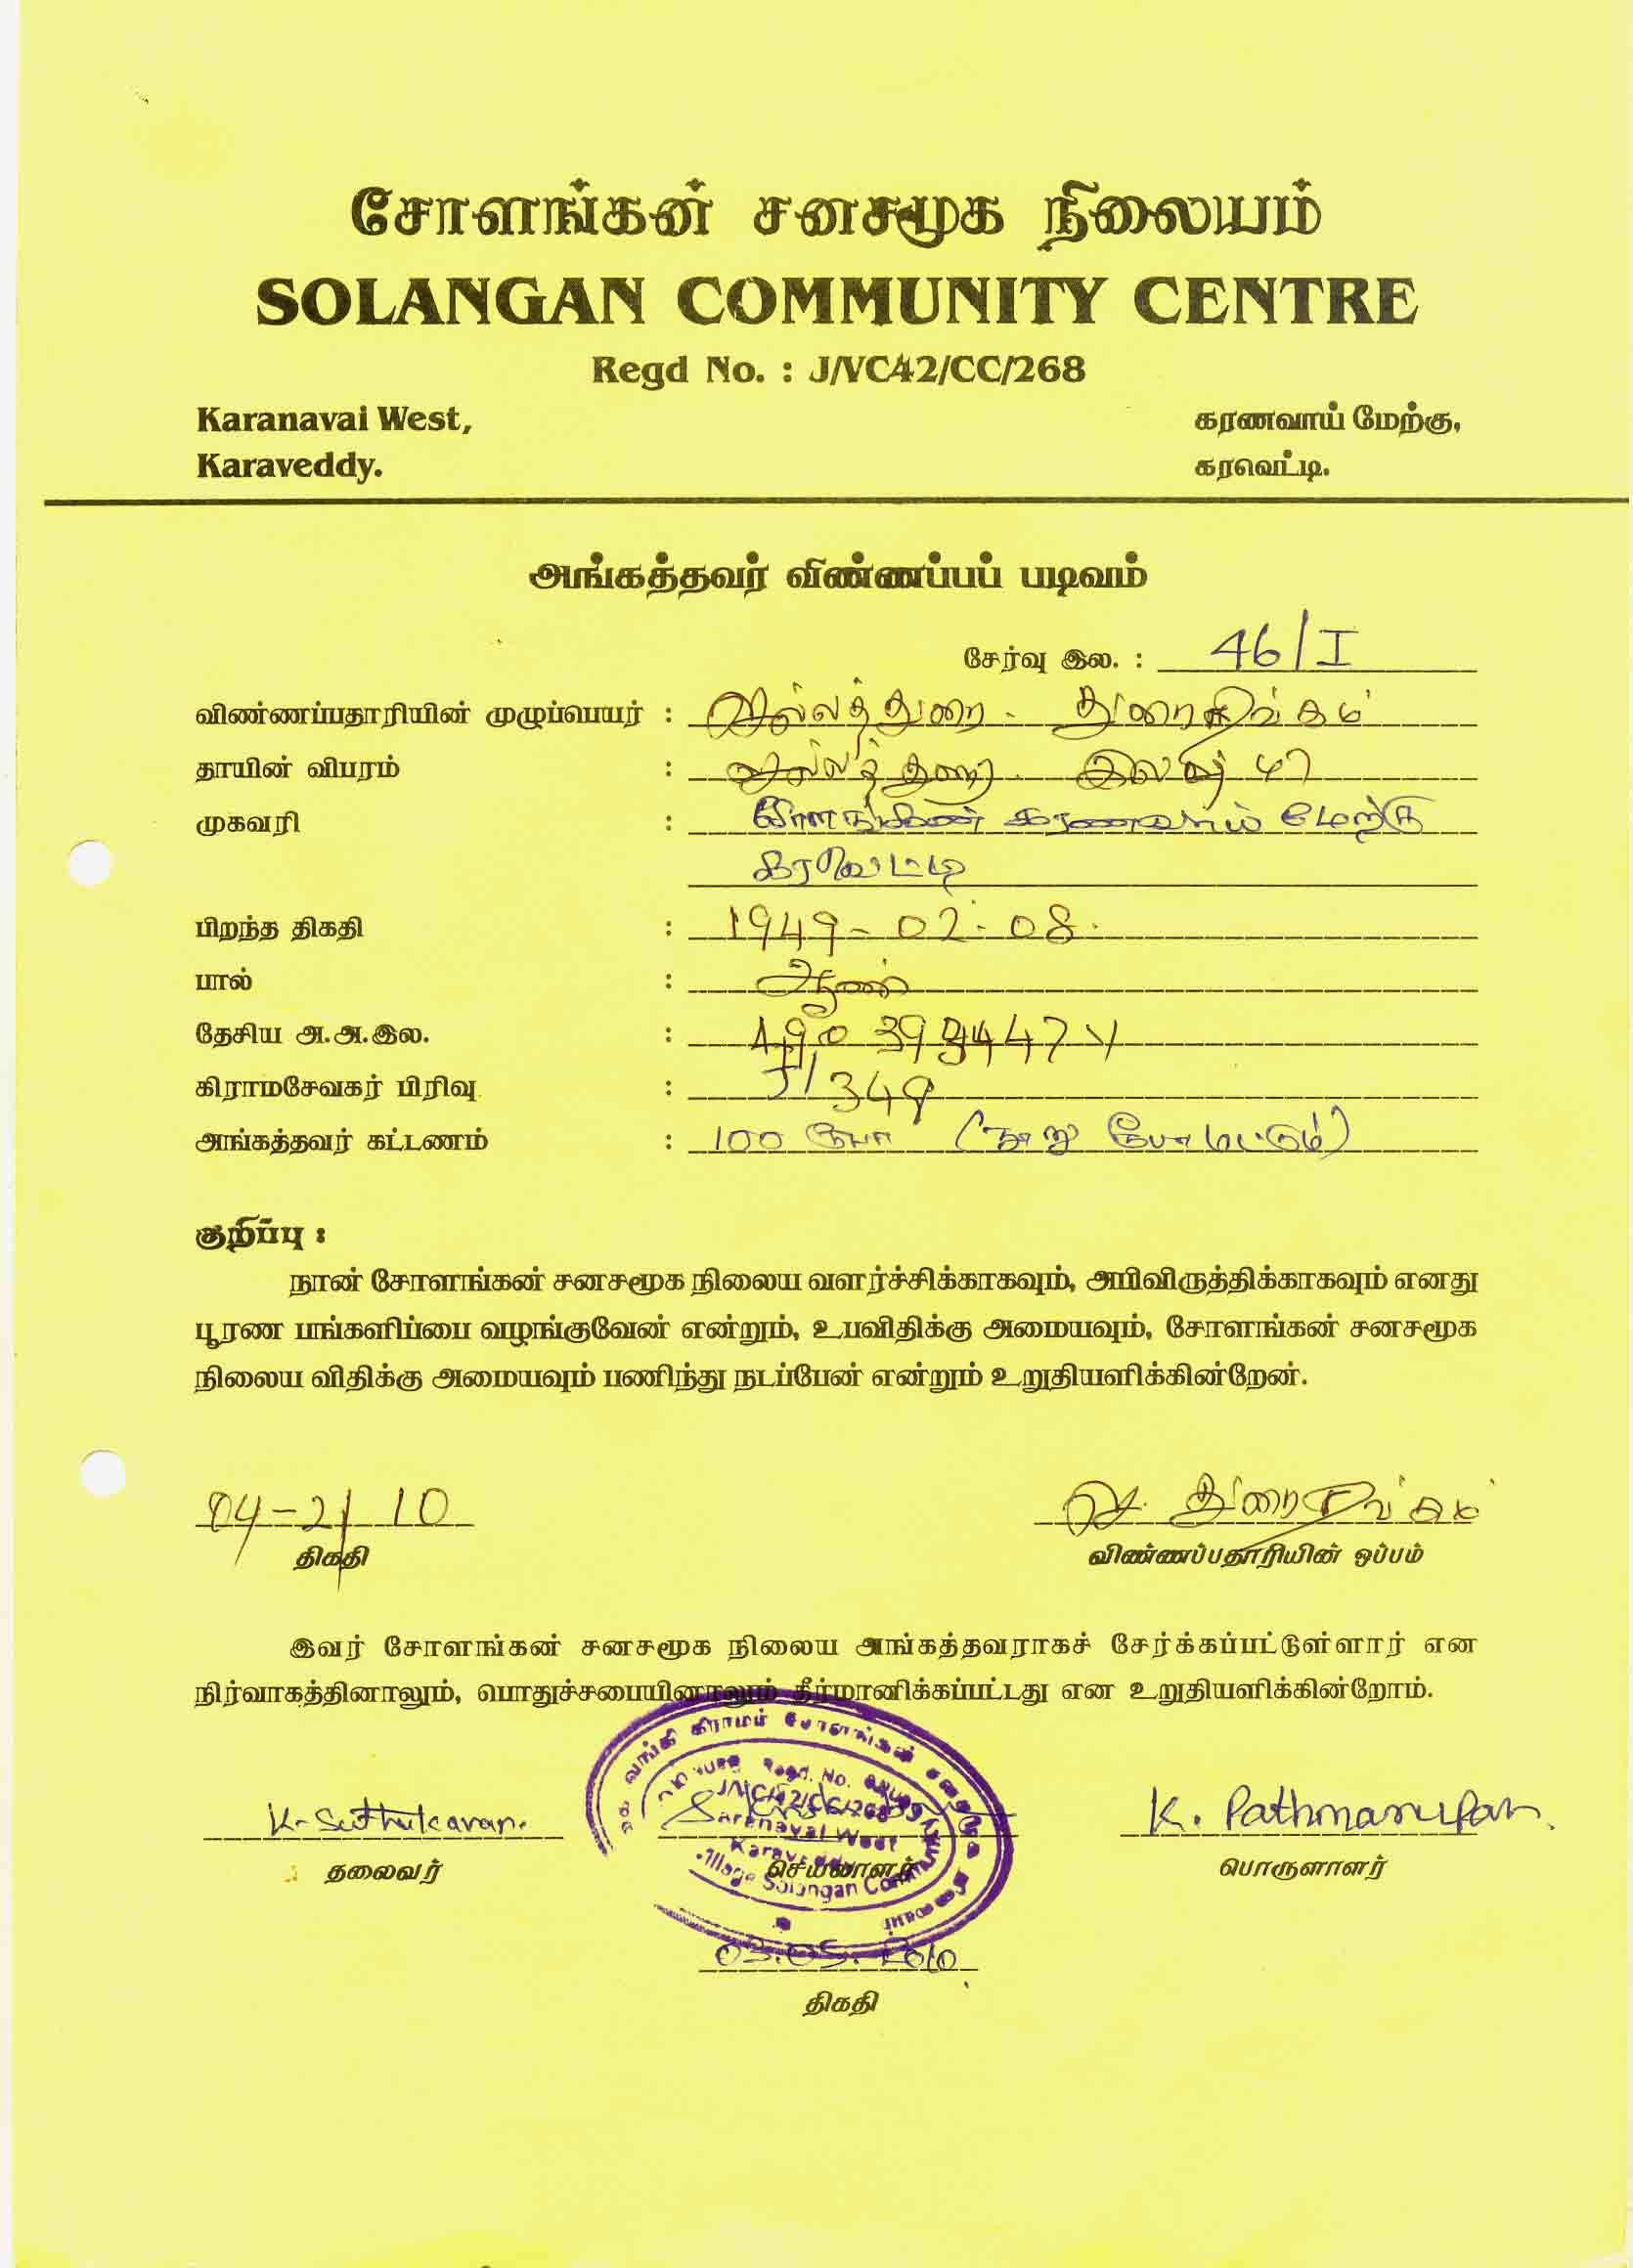 சோளங்கன் சனசமூக நிலையம்
SOLANGAN COMMUNITY CENTRE
Regd No. : J/VC42/CC/268
Karanavai West, கரணவாய் மேற்கு,
Karaveddy. கரவெட்டி.
அங்கத்தவர் விண்ணப்பப் படிவம்
சேர்வு இல. : 46/I
விண்ணப்பதாரியின் முழுப்பெயர் : செல்லத்துரை துரைசிங்கம்
தாயின் விபரம் : செல்லத்துரை
முகவரி : சோளங்கன் கரணவாய் மேற்கு
கரவெட்டி
பிறந்த திகதி : 1949-02-08
பால் : ஆண்
தேசிய அ.அ.இல. :
கிராமசேவகர் பிரிவு : J/349
அங்கத்தவர் கட்டணம் : 100 ரூபா (நூறு ரூபா மட்டும்)
குறிப்பு :
நான் சோளங்கன் சனசமூக நிலைய வளர்ச்சிக்காகவும், அபிவிருத்திக்காகவும் எனது
பூரண பங்களிப்பை வழங்குவேன் என்றும், உபவிதிக்கு அமையவும், சோளங்கன் சனசமூக
நிலைய விதிக்கு அமையவும் பணிந்து நடப்பேன் என்றும் உறுதியளிக்கின்றேன்.
04-2/10 செ. துரைசிங்கம்
திகதி விண்ணப்பதாரியின் ஒப்பம்
இவர் சோளங்கன் சனசமூக நிலைய அங்கத்தவராகச் சேர்க்கப்பட்டுள்ளார் என
நிர்வாகத்தினாலும், பொதுச்சபையினாலும் தீர்மானிக்கப்பட்டது என உறுதியளிக்கின்றோம்.
K. Suthakaran. K. Pathmarupan.
தலைவர் செயலாளர் பொருளாளர்
03.05.2010
திகதி